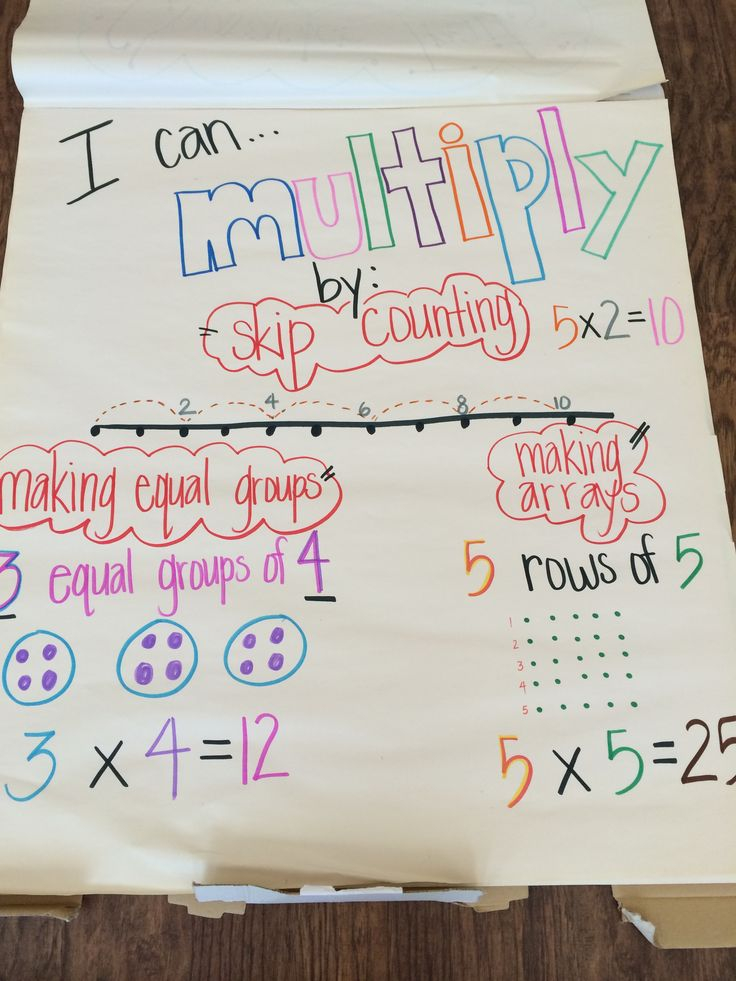 I can...
multiply
by:
skip counting
5x2=10
2 4 6 8 10
making equal groups
3 equal groups of 4
3 x 4=12
making
arrays
5 rows of 5
1
2
3
4
5
5 x 5=25